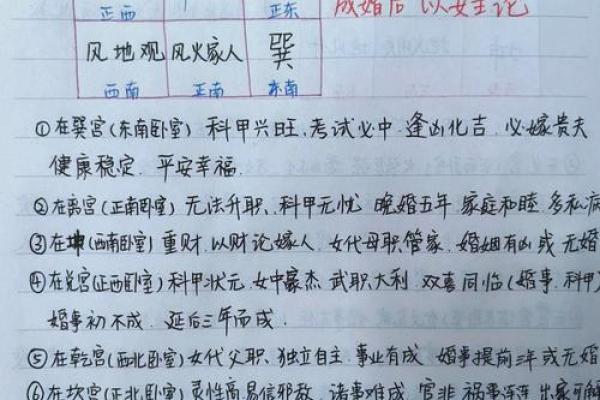 正西 正东 成婚后 以女主论
风地观 风火家人 巽
西南 正南 东南
①在巽宫(东南卧室) 科甲兴旺、考试必中 逢凶化吉 必嫁贵夫
健康稳定、平安幸福.
②在离宫(正南卧室) 无法升职、科甲无忧 晚婚五年 家庭和睦 多私
③在坤(西南卧室) 重财、以财论嫁人、女代母职管家、婚姻有凶或无婚
④在兑宫(正西卧室) 科甲状元、女中豪杰 武职大利、双喜同临(婚事、科甲)
婚事初不成、延后三年而成.
⑤在乾宫(西北卧室) 女代父职、独立自主 事业有成 婚事提前三年或无婚
⑥在坎宫(正北卧室) 灵性高易信邪教、诸事难成、官非 祸事连连